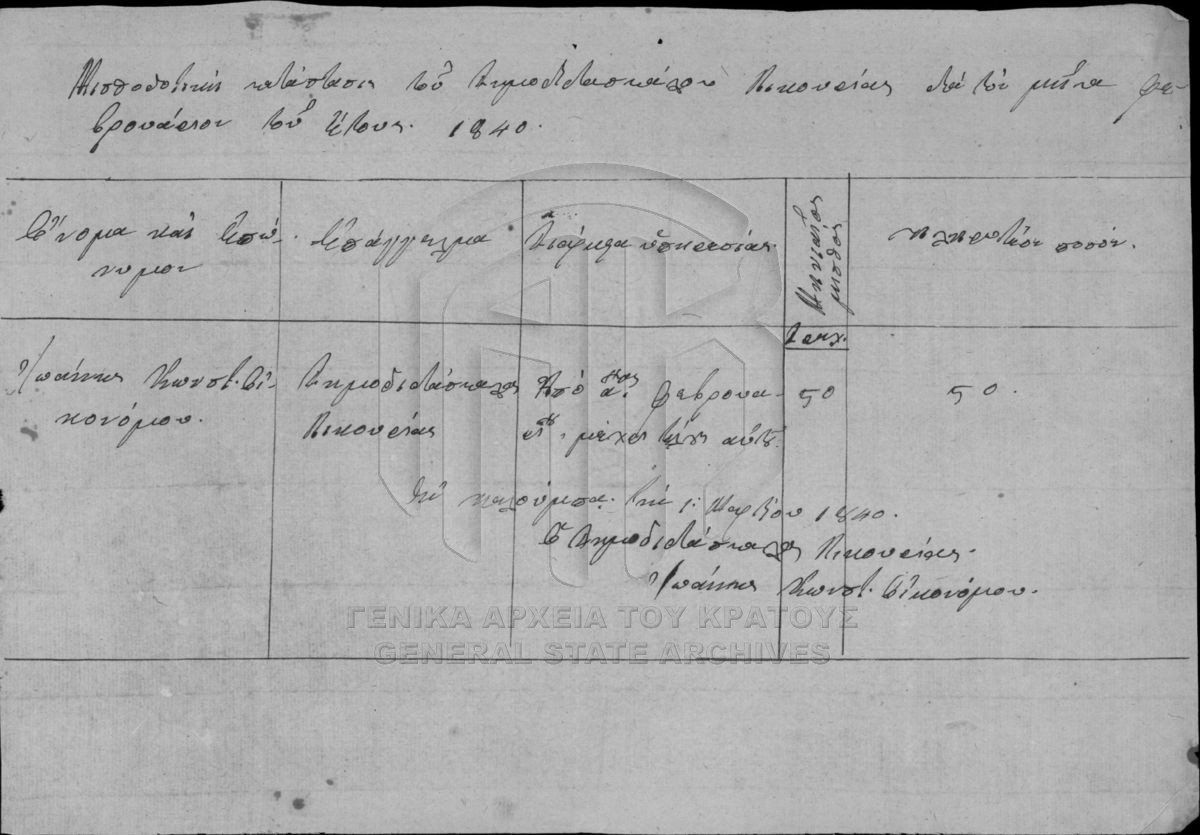 Μισθοδοτική κατάστασις τοῦ δημοδιδασκάλου διὰ τὸν μῆνα Φε-
βρουάριον τοῦ ἔτους 1840.
Ὄνομα καὶ ἐπώ-
νυμον
Ἐπάγγελμα
Διάρκεια ὑπηρεσίας.
Μηνιαῖος
μισθὸς
πληρωτέον ποσόν.
Δραχ.
Ἰωάννης Κωνστ. Οἰ-
κονόμου.
Δημοδιδάσκαλος
Ἀπὸ α.ης Φεβρουα-
ρίου μέχρι τέλους αὐτοῦ.
50
50.
τὴν 1: Μαρτίου 1840.
Ὁ Δημοδιδάσκαλος
Ἰωάννης Κωνστ. Οἰκονόμου.
ΓΕΝΙΚΑ ΑΡΧΕΙΑ ΤΟΥ ΚΡΑΤΟΥΣ
GENERAL STATE ARCHIVES